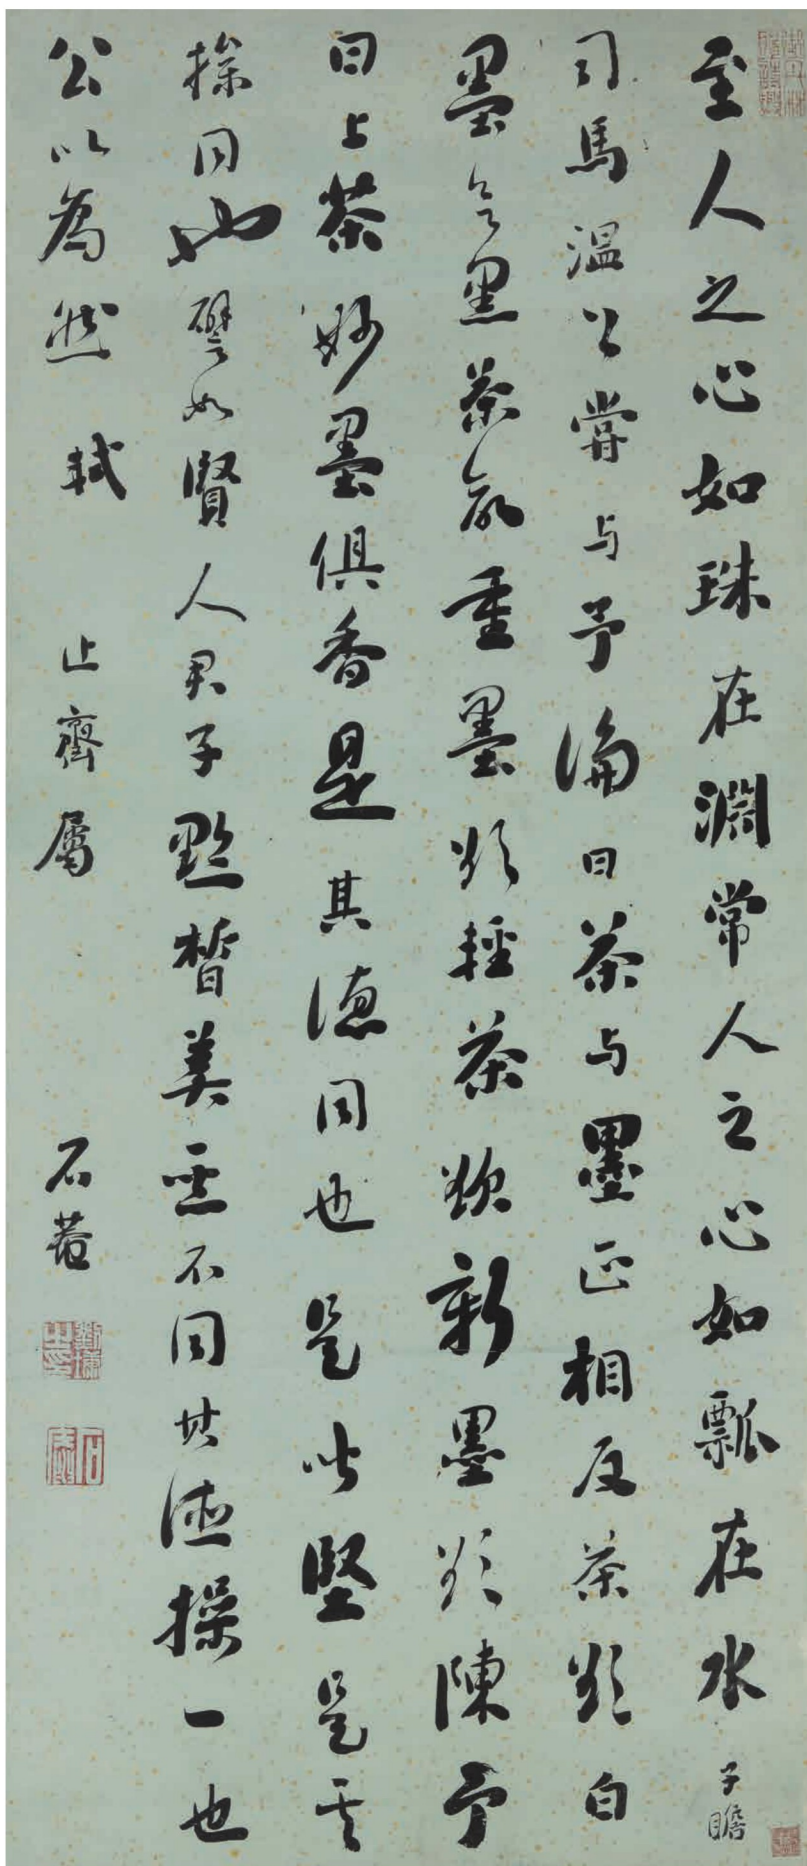 至人之心如珠在淵常人之心如瓢在水 子瞻
司馬溫公嘗与予論曰茶与墨正相反茶欲白
墨欲黑茶欲重墨欲輕茶欲新墨欲陳予
曰上茶妙墨俱香是其德同也是皆堅是其
操同也譬如賢人君子黔皙美惡不同其德操一也
公以為然 軾 止齋屬 石菴
劉墉之印
石菴